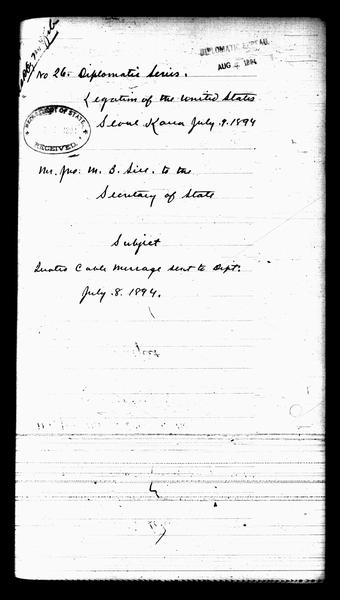 DIPLOMATIC BUREAU
AUG 1894
No 26. Diplomatic Series.
Legation of the United States
Seoul Korea July. 9. 1894
DEPARTMENT OF STATE
RECEIVED.
Mr. Jno: M. B. Sill. to the
Secretary of State
Subject
Quotes Cable Message sent to Dept.
July. 8. 1894.